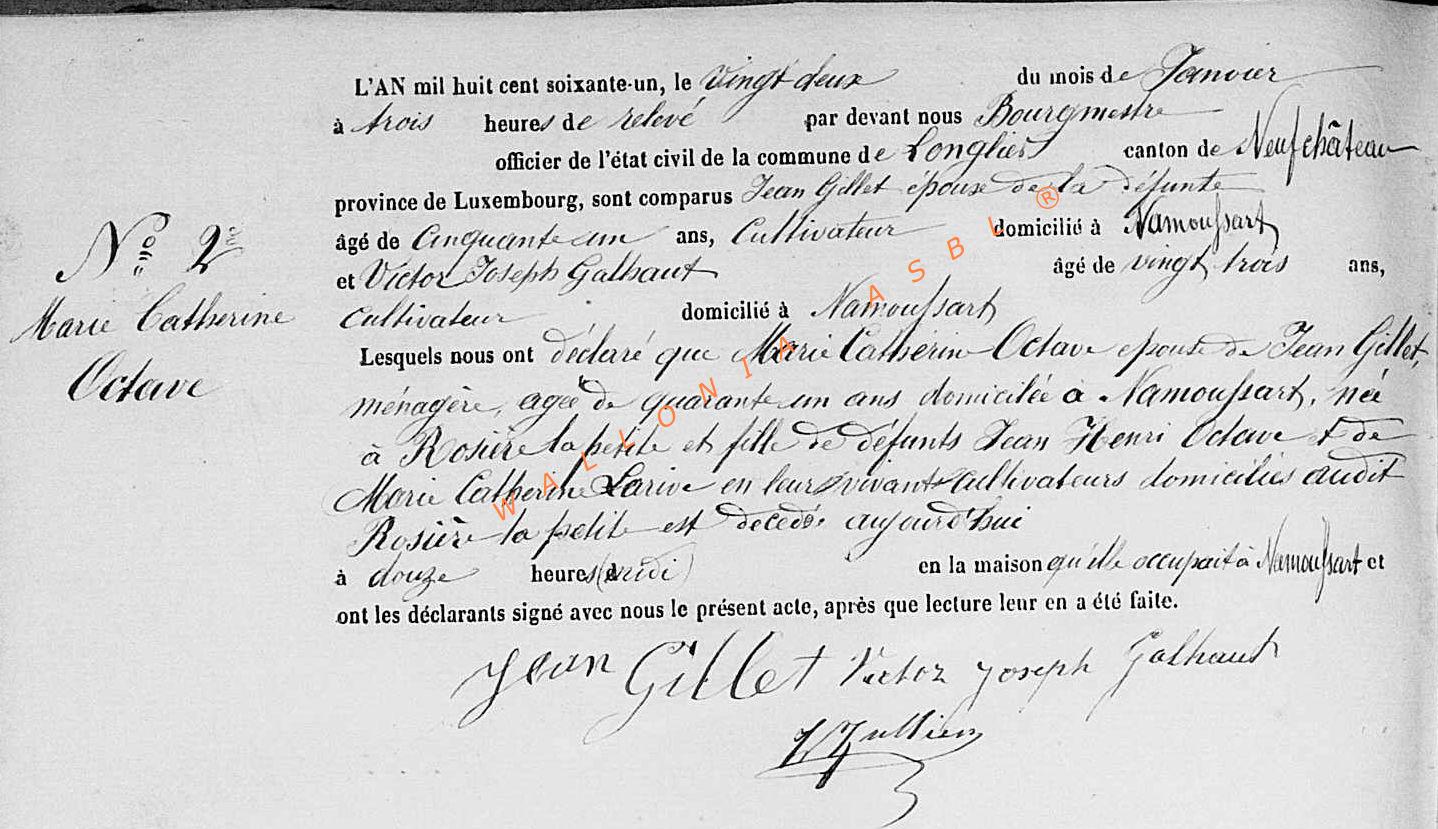 L'AN mil huit cent soixante-un, le vingt deux du mois de Janvier
à trois heures de relevé par devant nous Bourgmestre
officier de l'état civil de la commune de Longlier canton de Neufchâteau
province de Luxembourg, sont comparus Jean Gillet épouse de la défunte
âgé de Cinquante un ans, Cultivateur domicilié à Namoussart
et Victor Joseph Galhaut âgé de vingt trois ans,
Cultivateur domicilié à Namoussart
Lesquels nous ont déclaré que Marie Catherine Octave epouse de Jean Gillet,
ménagère, agée de quarante un ans domicilée à Namoussart, née
à Rosière la petite et fille de défunts Jean Henri Octave et de
Marie Catherine Larive en leurs vivants cultivateurs domiciliés audit
Rosière la petite est decedé aujourd'hui
à douze heures (midi) en la maison qu'elle occupait à Namoussart et
ont les déclarants signé avec nous le présent acte, après que lecture leur en a été faite.
Jean Gillet Victor Joseph Galhaut
Jullien
No 2me
Marie Catherine
Octave
WALLONIA ASBL ®